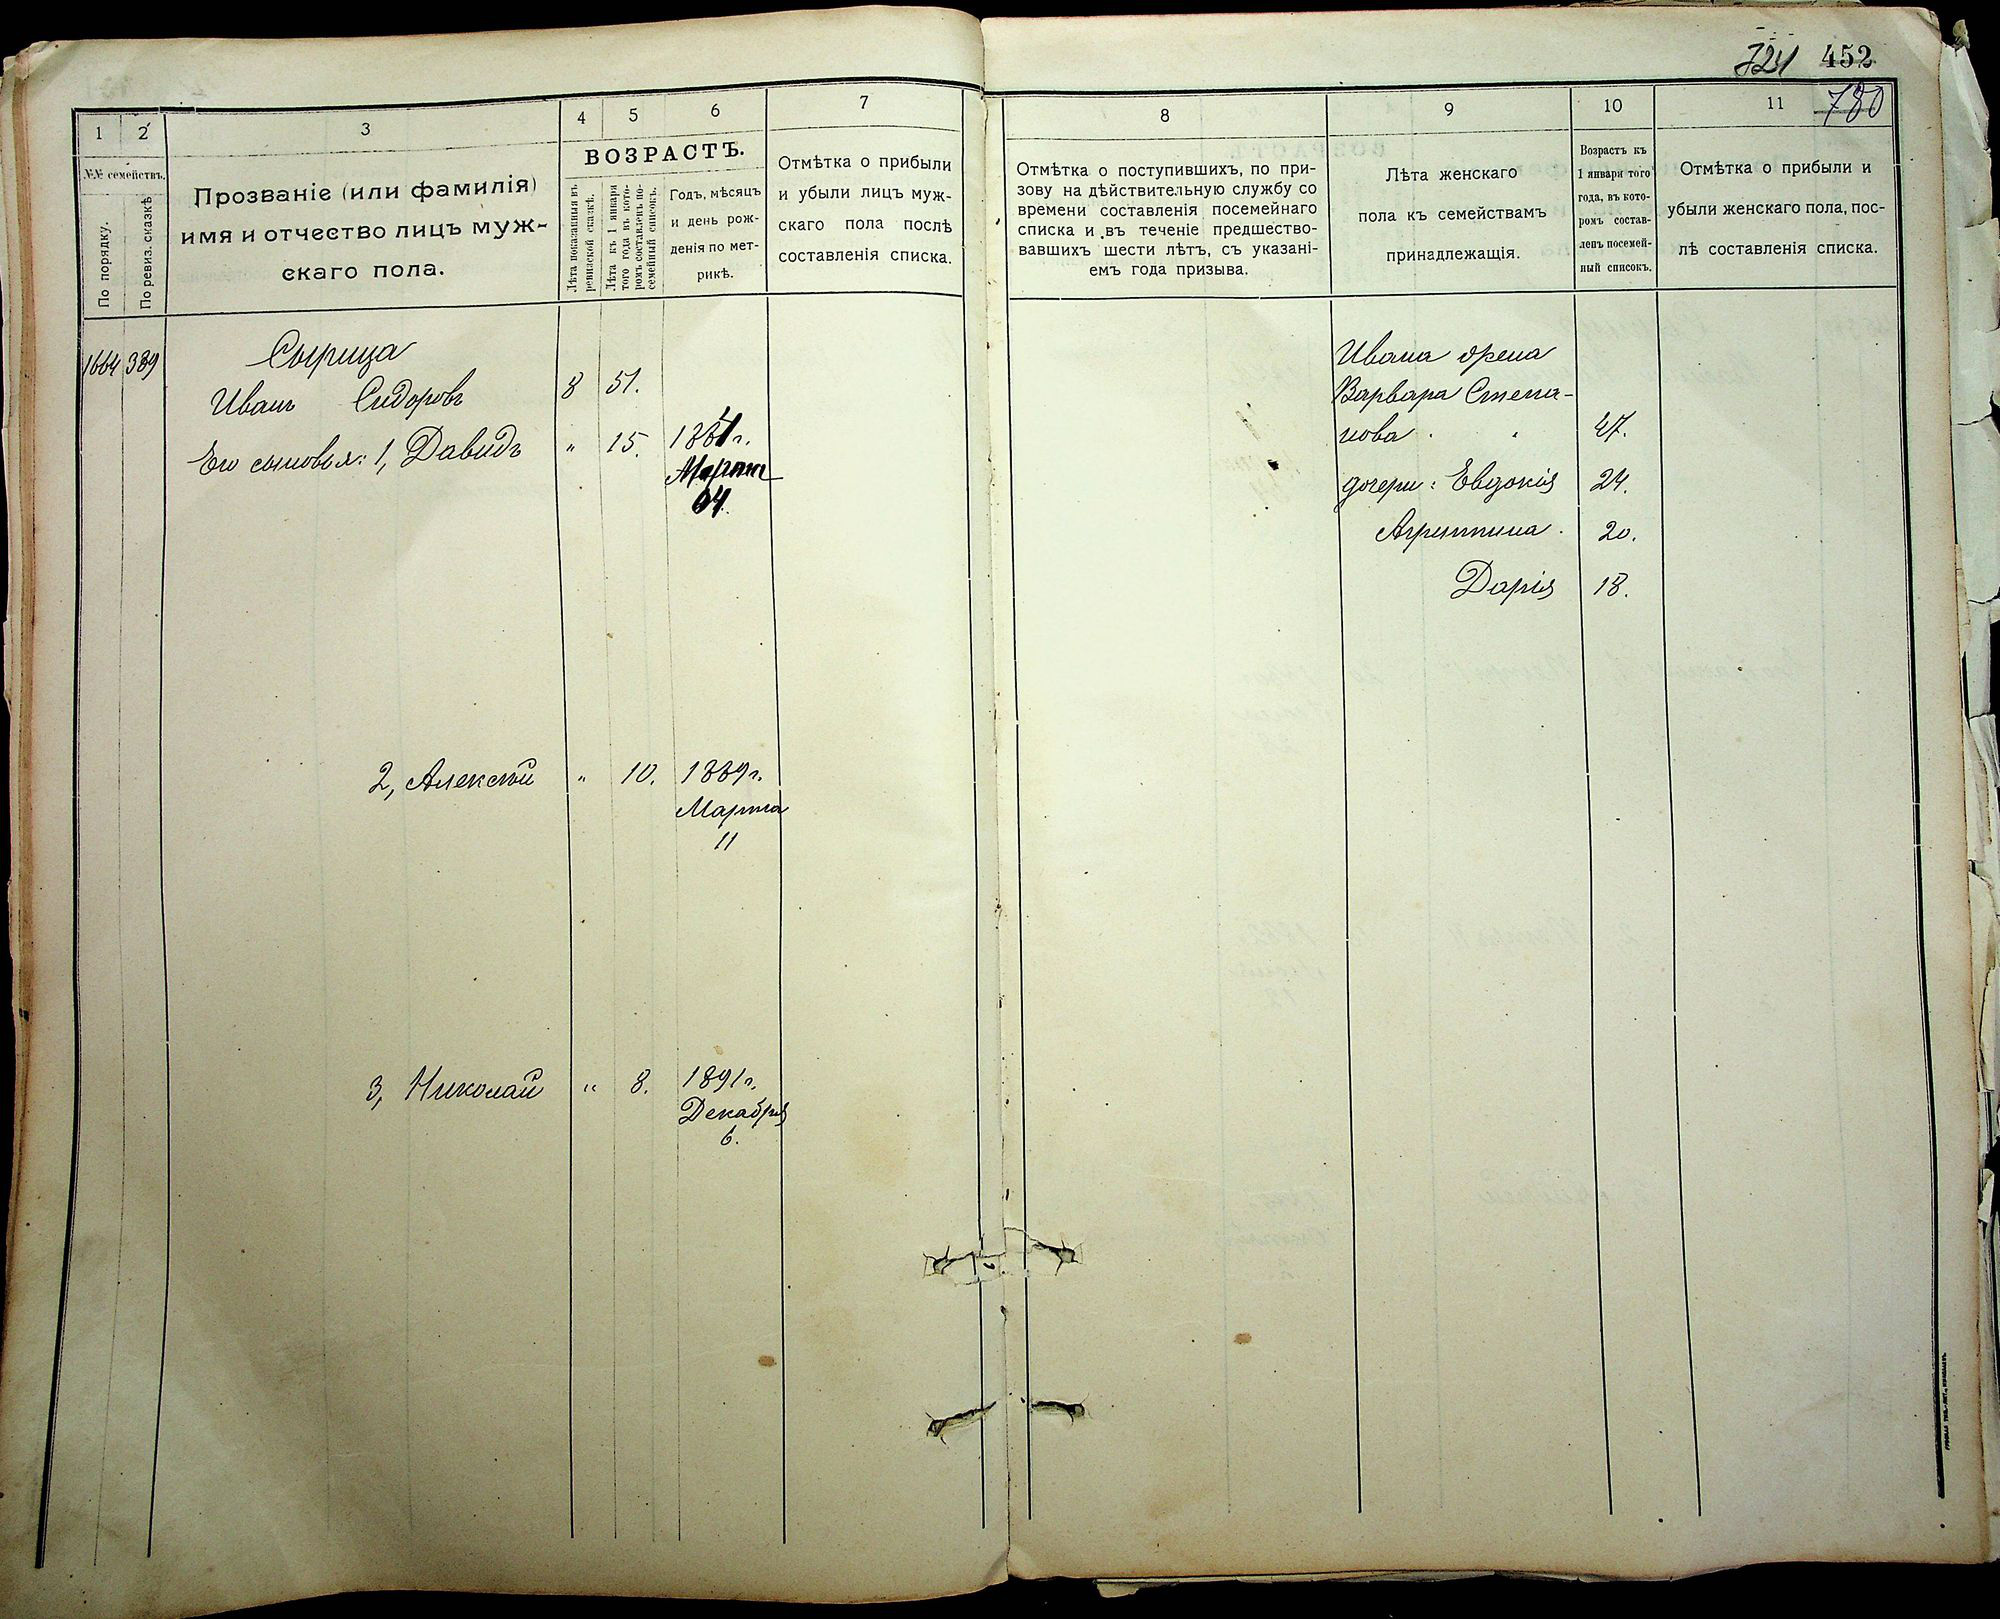 724 452
780
1 2 3 4 5 6 7
№№ семействъ.
По порядку.
По ревиз. сказкѣ
Прозваніе (или фамилія)
имя и отчество лицъ муж-
скаго пола.
ВОЗРАСТЪ.
Лѣта показанныя въ
ревизской сказкѣ.
Лѣта къ 1 января
того года въ кото-
ромъ составленъ по-
семейный списокъ.
Годъ, мѣсяцъ
и день рож-
денія по мет-
рикѣ.
Отмѣтка о прибыли
и убыли лицъ муж-
скаго пола послѣ
составленія списка.
1664 389 Сырица
Иванъ Сидоровъ 8 51.
Его сыновья: 1, Давидъ " 15. 1884 г.
Марта
04.
2, Алексѣй " 10. 1889 г.
Марта
11
3, Николай " 8. 1891 г.
Декабря
6.
8 9 10 11
Отмѣтка о поступившихъ, по при-
зову на дѣйствительную службу со
времени составленія посемейнаго
списка и въ теченіе предшество-
вавшихъ шести лѣтъ, съ указані-
емъ года призыва.
Лѣта женскаго
пола къ семействамъ
принадлежащія.
Возрастъ къ
1 января того
года, въ кото-
ромъ состав-
ленъ посемей-
ный списокъ.
Отмѣтка о прибыли и
убыли женскаго пола, пос-
лѣ составленія списка.
Ивана жена
Варвара Степа-
нова 47.
дочери: Евдокія 24.
Агриппина 20.
Дарія 18.